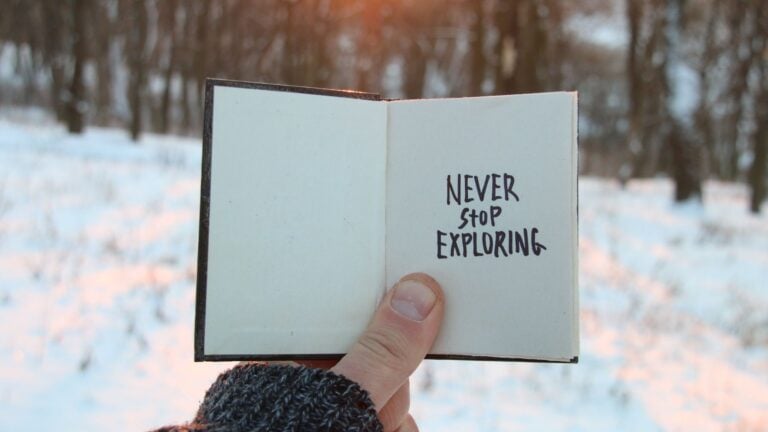 NEVER
STOP
EXPLORING